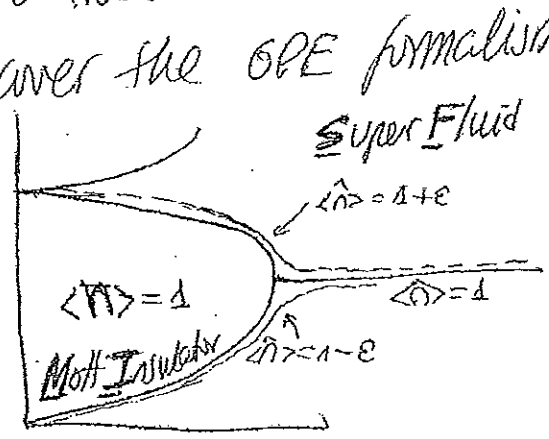 over the GPE formalism
Super Fluid
<n̂> = 1+ε
<n̂> = 1
<n̂> = 1
Mott Insulator
<n̂> = 1-ε